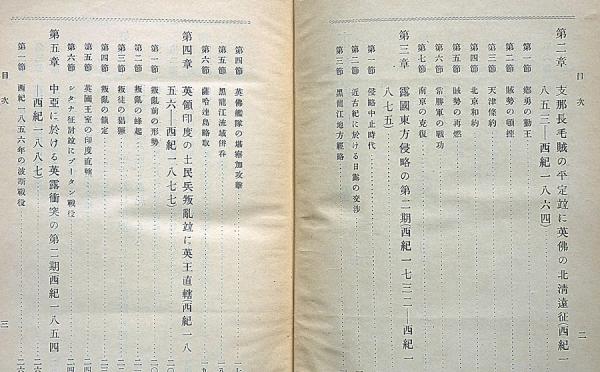 目次
第二章 支那長毛賊の平定竝に英佛の北淸遠征(西紀一
八五三—西紀一八六四)
第一節 鄕勇の勤王
第二節 賊勢の頓挫
第三節 天津條約
第四節 北京和約
第五節 賊勢の再燃
第六節 常勝軍の戰功
第七節 南京の克復
第三章 露國東方侵略の第二期(西紀一七三二—西紀一
八七五)
第一節 侵略中止時代
第二節 近古紀に於ける日露の交涉
第三節 黑龍江地方經略
二
第四節 英佛艦隊の堪察加攻擊
第五節 黑龍江流域倂呑
第六節 薩哈連島略取
第四章 英領印度の土民兵叛亂竝に英王直轄(西紀一八
五六—西紀一八七七)
第一節 叛亂前の形勢
第二節 叛亂の蜂起
第三節 叛徒の猖獗
第四節 叛亂の鎭定
第五節 英國王室の印度直轄
第六節 シタナ征討竝にブータン戰役
第五章 中亞に於ける英露衝突の第二期(西紀一八五四
—西紀一八八七)
第一節 西紀一八五六年の波斯戰役
目次
三